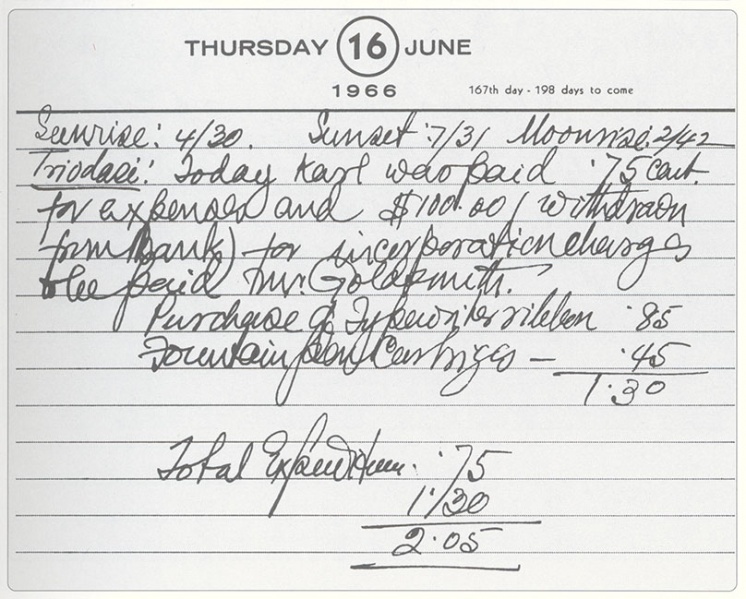 THURSDAY 16 JUNE
1966 167th day - 198 days to come
Sunrise: 4/30. Sunset: 7/31 Moonrise: 2/42
Triodasi: Today Karl was paid .75 cent.
for expenses and $100.00 (withdrawn
from bank) for incorporation charges
to be paid Mr. Goldsmith.
Purchase of Typewriter ribbon .85
Fountain pen Cartriges — .45
1.30
Total Expenditure. .75
1.30
2.05